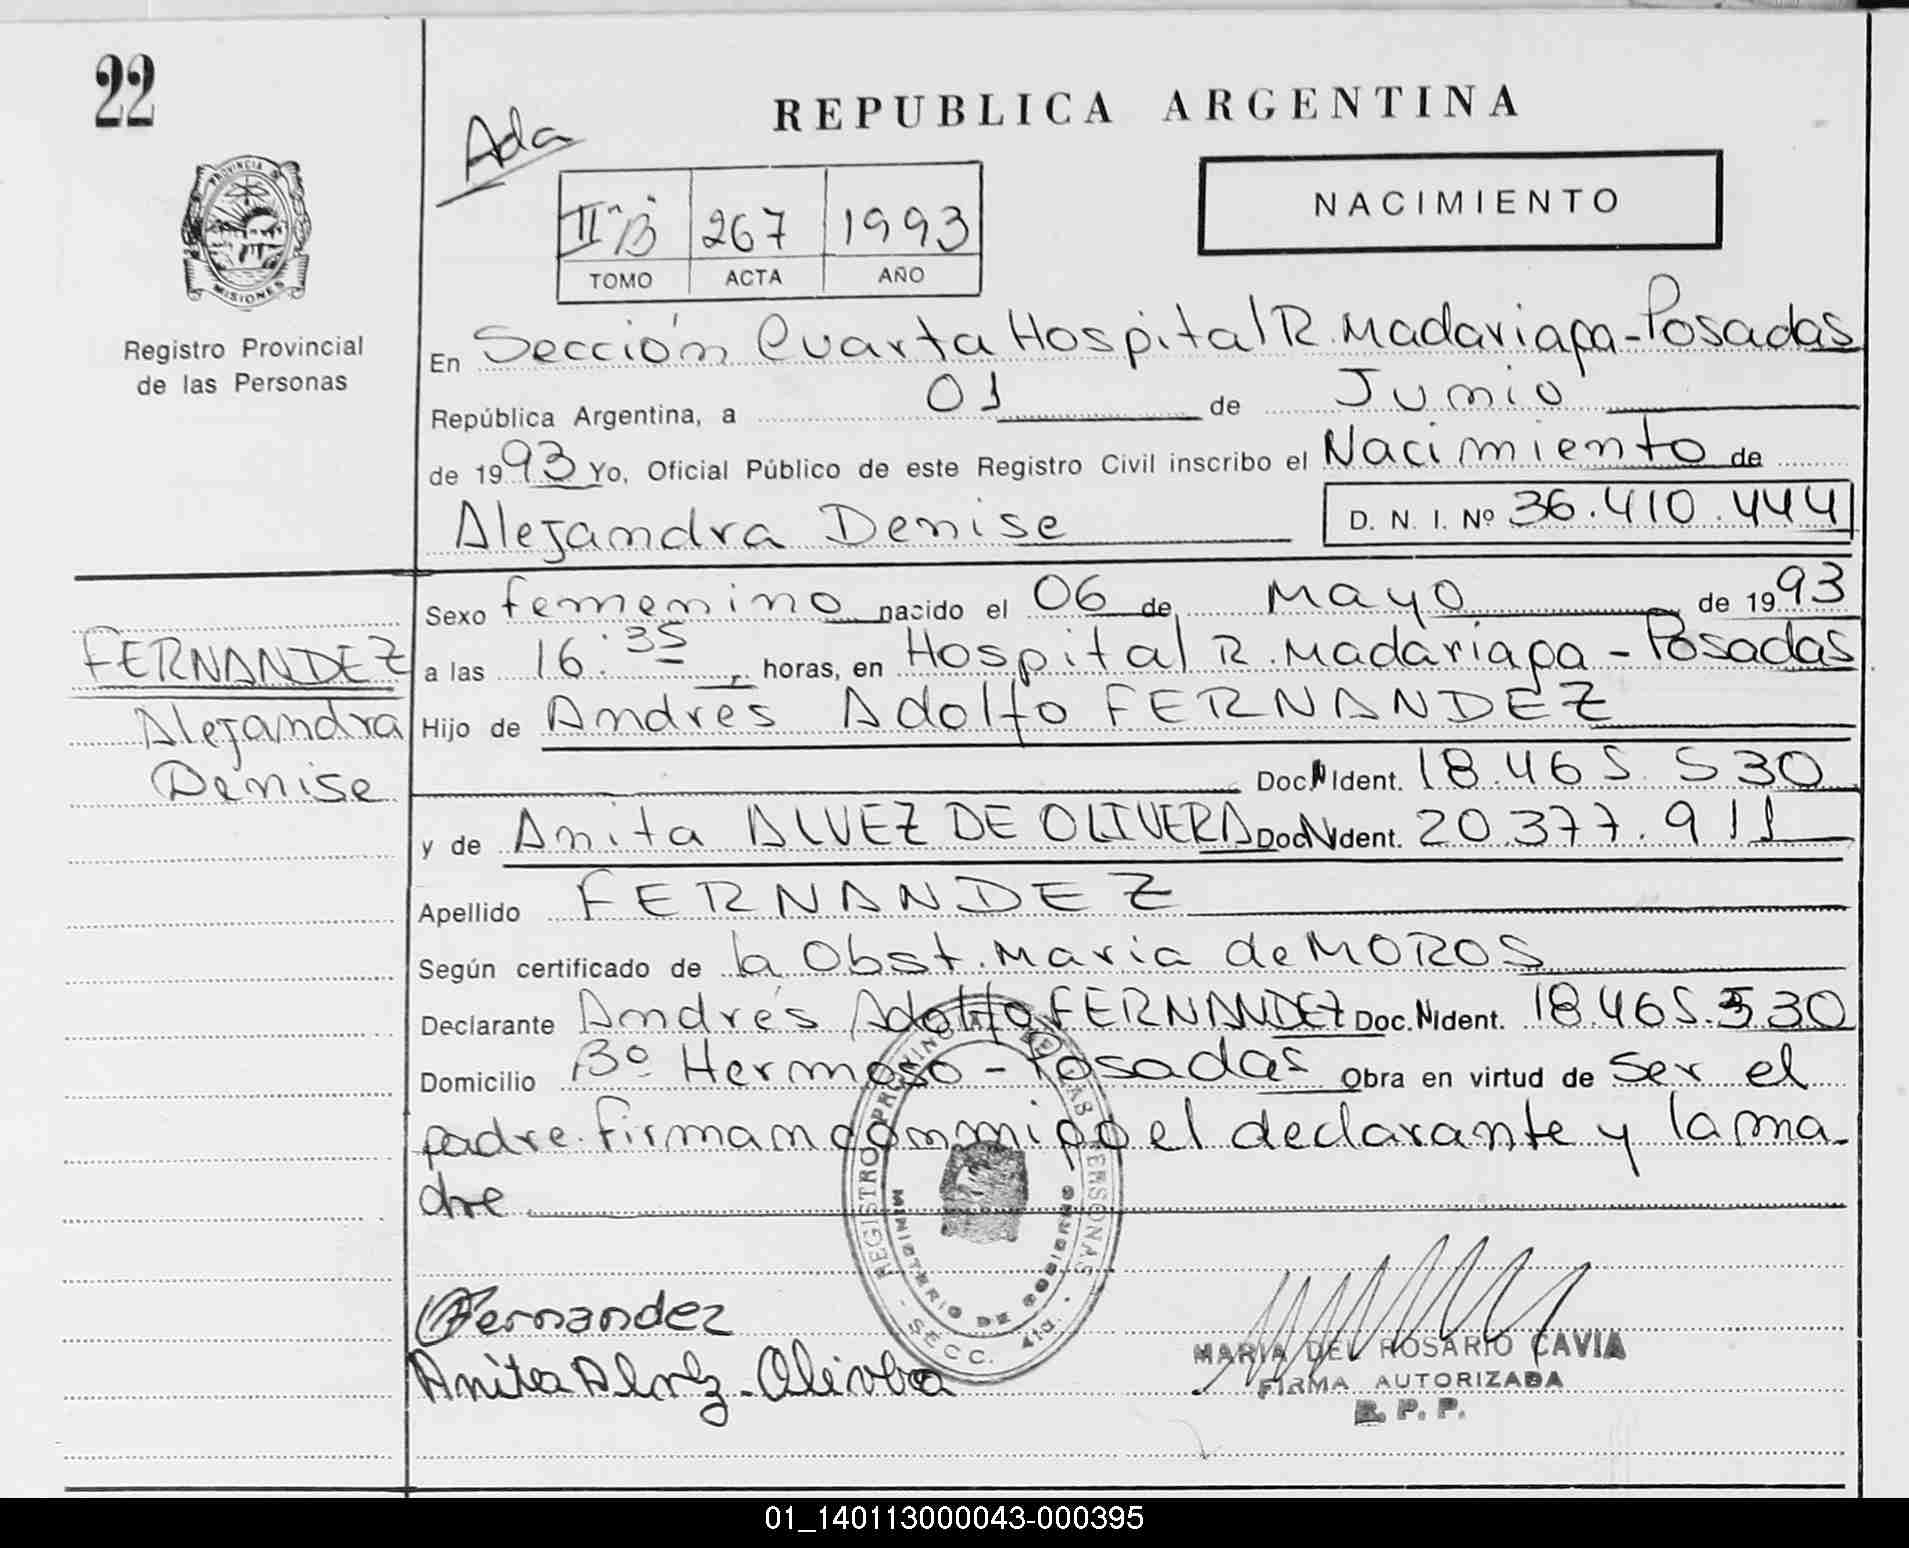 22
Ada
REPUBLICA ARGENTINA
PROVINCIA DE
MISIONES
Registro Provincial
de las Personas
IIº"B" 267 1993
TOMO ACTA AÑO
NACIMIENTO
En Sección Cuarta Hospital R. Madariaga - Posadas
República Argentina, a 01 de Junio
de 1993 Yo, Oficial Público de este Registro Civil inscribo el Nacimiento de
Alejandra Denise D. N. I. Nº 36.410.444
Sexo femenino nacido el 06 de Mayo de 1993
FERNANDEZ
Alejandra
Denise
a las 16:35 horas, en Hospital R. Madariaga - Posadas
Hijo de Andrés Adolfo FERNANDEZ
Doc. N Ident. 18.465.530
y de Anita ALVEZ DE OLIVERA Doc N Ident. 20.377.911
Apellido FERNANDEZ
Según certificado de la Obst. Maria de MOROS
Declarante Andrés Adolfo FERNANDEZ Doc. N Ident. 18.465.530
Domicilio Bº Hermoso - Posadas Obra en virtud de ser el
padre. Firman conmigo el declarante y la ma-
dre
REGISTRO PROVINCIAL DE LAS PERSONAS
MINISTERIO DE GOBIERNO
SECC. 4ta.
Fernandez
Anita Alvez Olivera
MARIA DEL ROSARIO CAVIA
FIRMA AUTORIZADA
R. P. P.
01_140113000043-000395